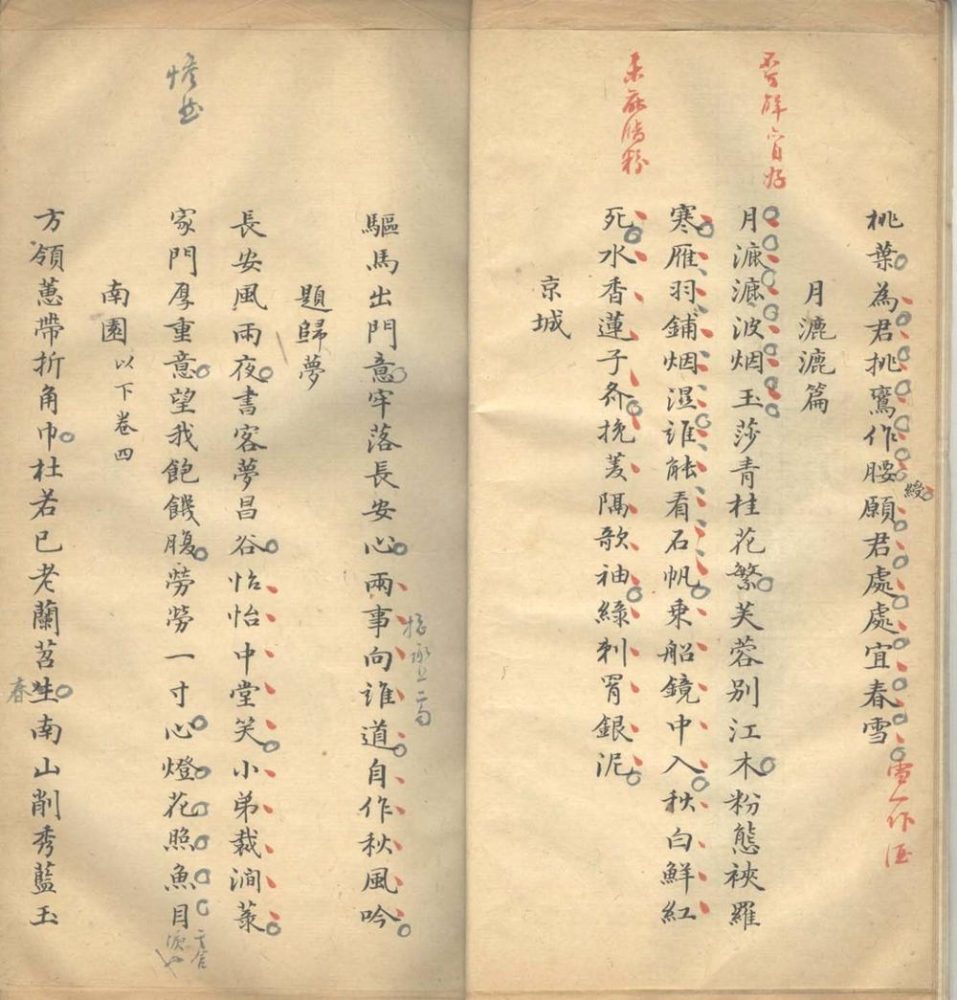 桃葉為君挑鸞作腰願君處處宜春雪
綬
雪一作酒
月漉漉篇
月漉漉波烟玉莎青桂花繁芙蓉別江木粉態裌羅
寒雁羽鋪烟濕誰能看石帆乗船鏡中入秋白鮮紅
死水香蓮子齐挽菱隔歌袖綠刺罥銀泥
京城
驅馬出門意牢落長安心兩事向誰道自作秋風吟
題歸夢
長安風雨夜書客夢昌谷怡怡中堂笑小弟裁澗菉
家門厚重意望我飽饑腹勞勞一寸心燈花照魚目
南園以下卷四
方領蕙帶折角巾杜若已老蘭苕生南山削秀藍玉
春